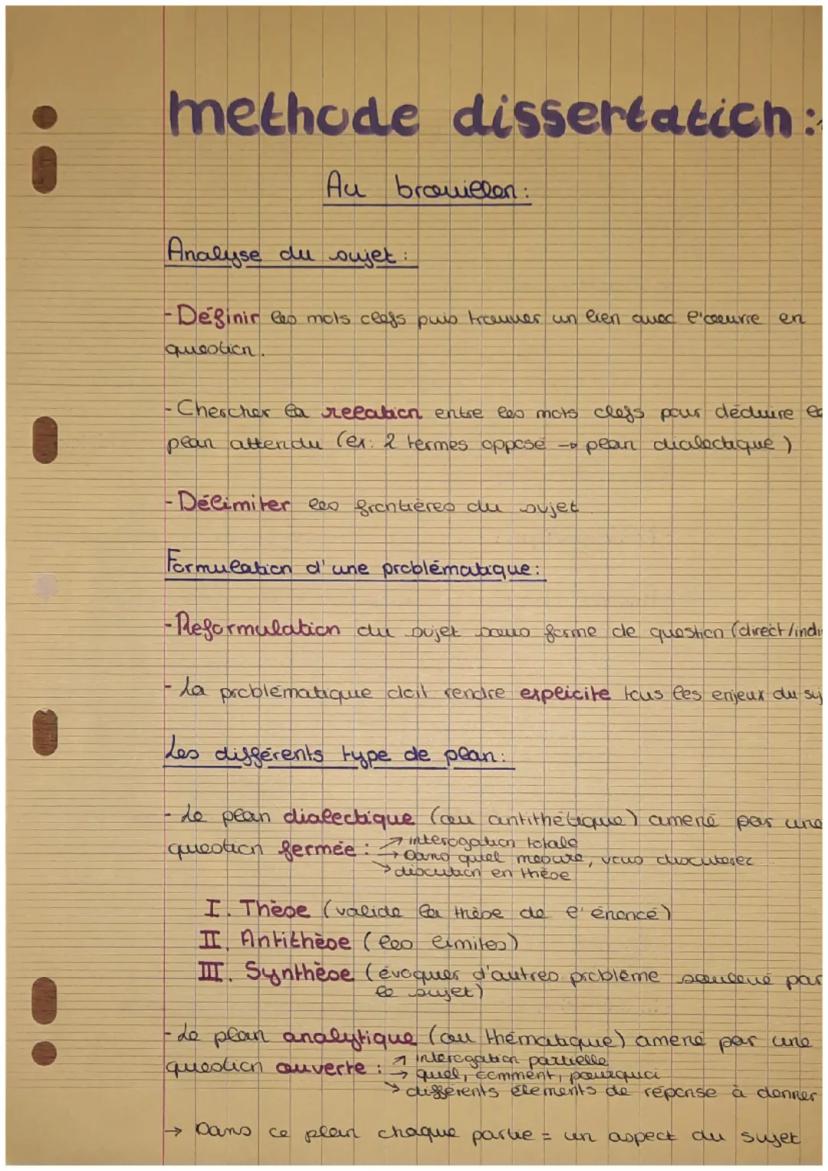 methode dissertation :
Au brouillon :
Analyse du sujet :
- Définir les mots clefs puis trouver un lien avec l'oeuvre en
question.
- Chercher la relation entre les mots clefs pour déduire
plan attendu (ex: 2 termes opposé → plan dialectique)
- Délimiter les frontières du sujet
Formulation d'une problématique :
- Reformulation du sujet sous forme de question (direct/indi
- La problématique doit rendre explicite tous les enjeux du suj
Les différents type de plan :
- Le plan dialectique (ou antithétique) amené par une
question fermée : → interogation totale
→ Dans quel mesure, vous discuterez
→ discution en thèse
I. Thèse (valide la thèse de l'énoncé)
II. Antithèse (les limites)
III. Synthèse (évoquer d'autres problème soulevé par
le sujet)
- Le plan analytique (ou thématique) amené par une
question ouverte : → interogation partielle
→ quel, comment, pourquoi
→ différents élements de réponse à donner
→ Dans ce plan chaque partie = un aspect du sujet